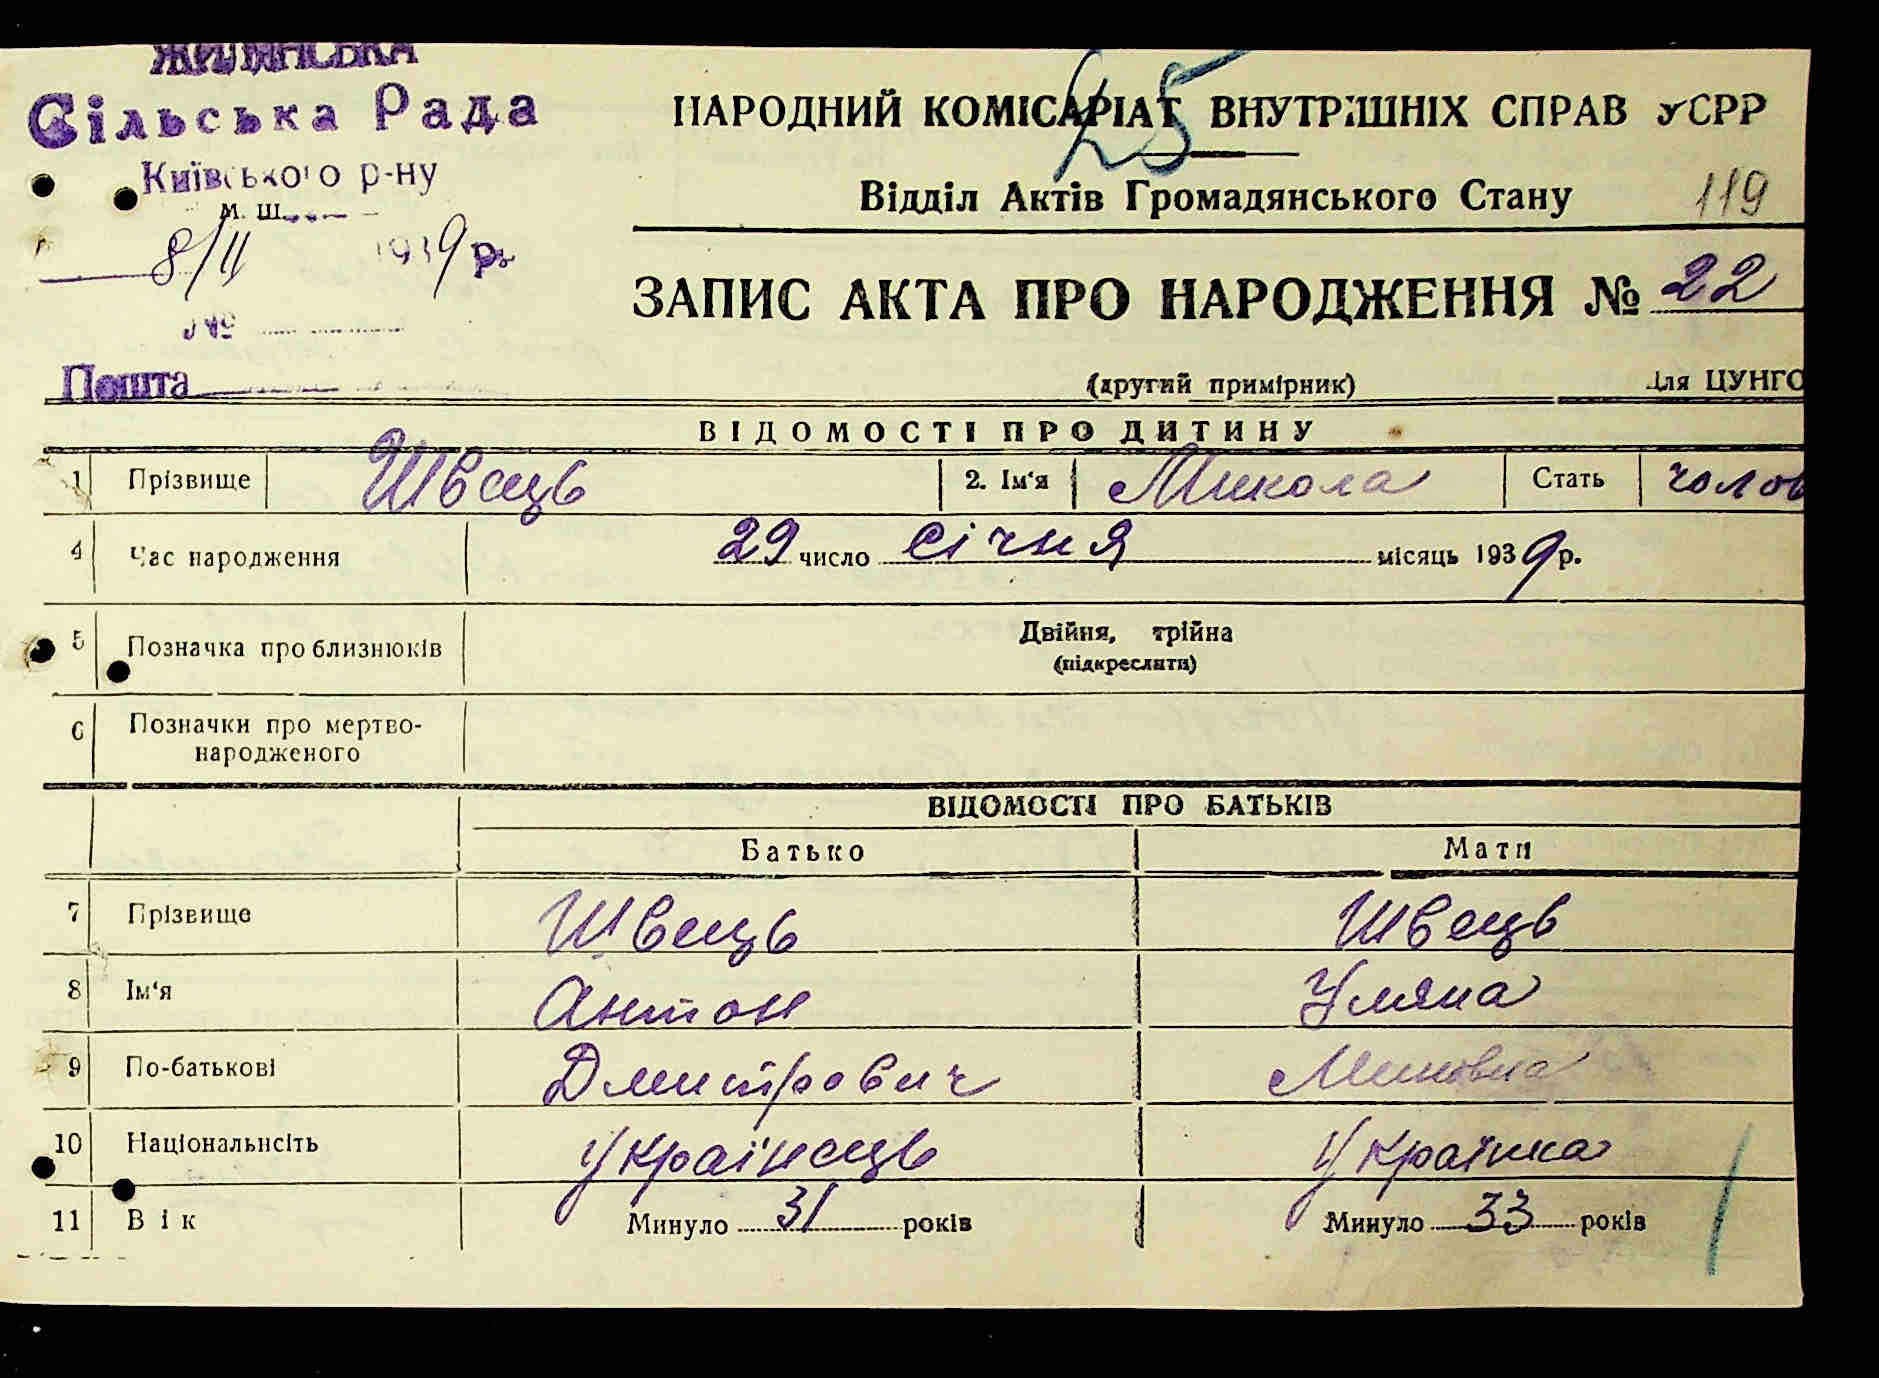 ЖИЛЯНСЬКА
Сільська Рада
Київського р-ну
8/II 1939 р.
№
Пошта
25
НАРОДНИЙ КОМІСАРІАТ ВНУТРІШНІХ СПРАВ УСРР
Відділ Актів Громадянського Стану 119
ЗАПИС АКТА ПРО НАРОДЖЕННЯ № 22
(другий примірник) Для ЦУНГО
ВІДОМОСТІ ПРО ДИТИНУ
1 Прізвище Швець 2. Ім'я Микола Стать чолов
4 Час народження 29 число січня місяць 1939 р.
5 Позначка про близнюків Двійня, трійна
(підкреслити)
6 Позначки про мертво-
народженого
ВІДОМОСТІ ПРО БАТЬКІВ
Батько Мати
7 Прізвище Швець Швець
8 Ім'я Антон Уляна
9 По-батькові Дмитрович
10 Національнсіть Українець Українка
11 Вік Минуло 31 років Минуло 33 років